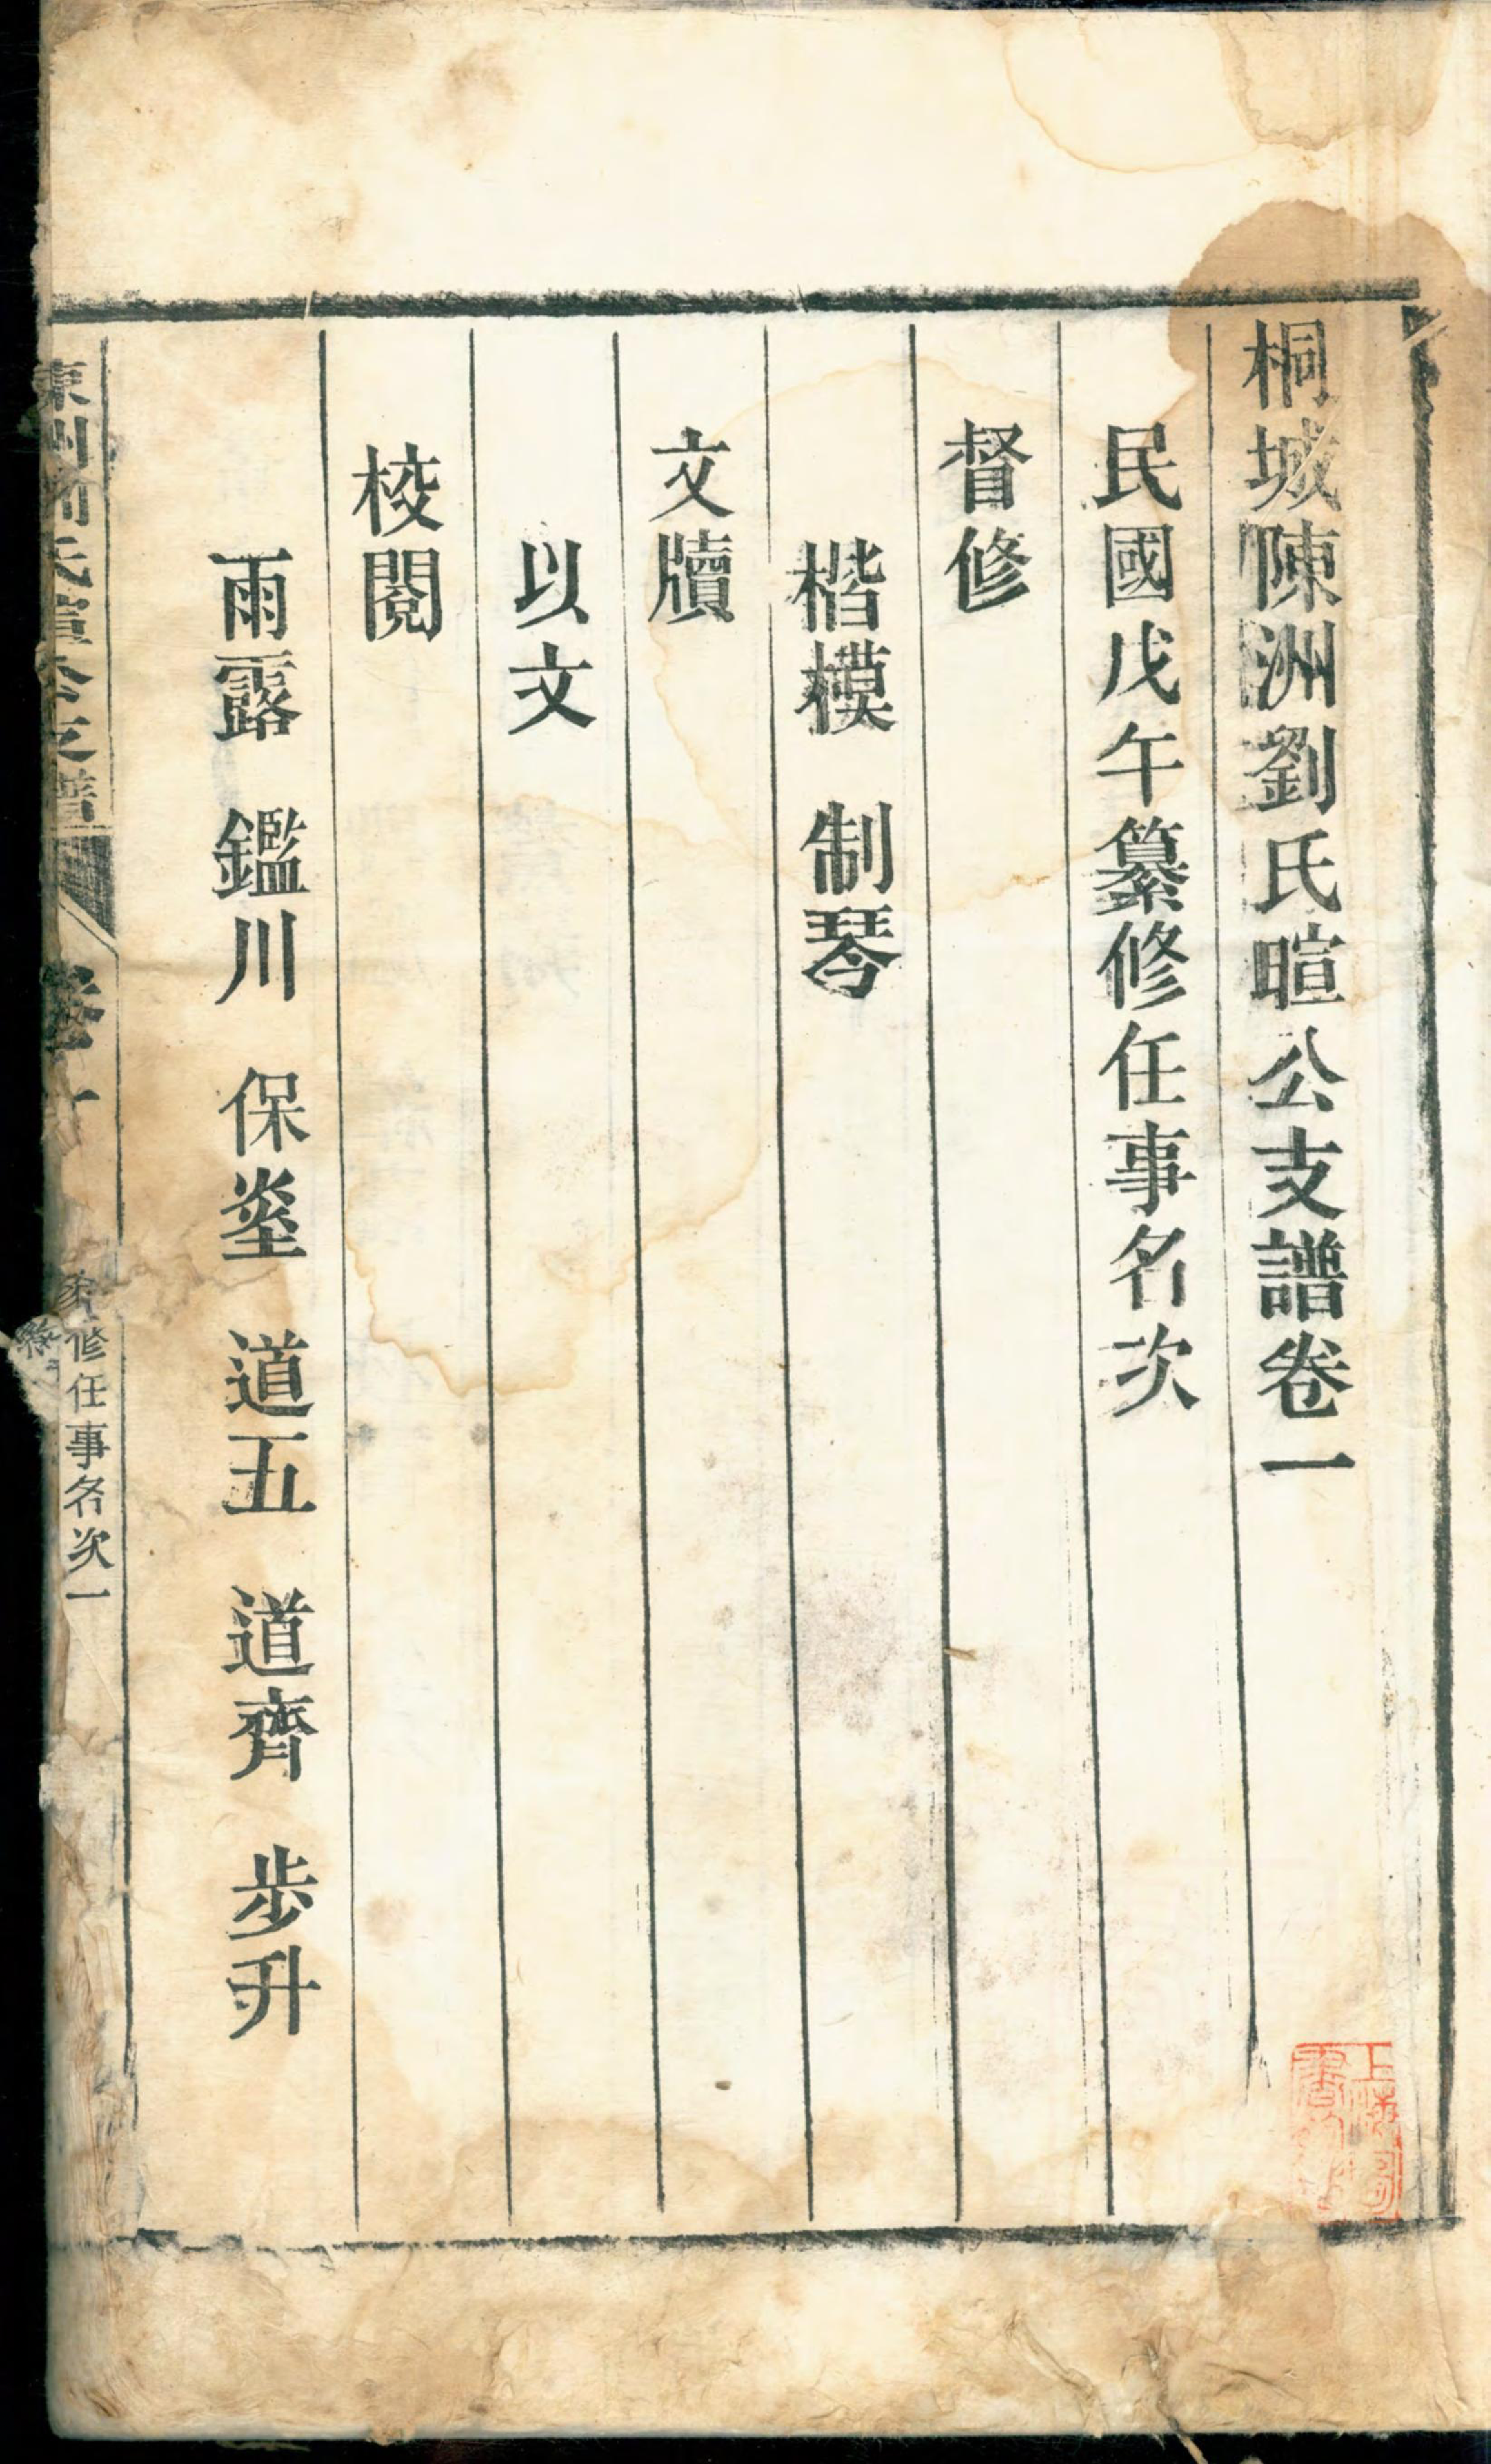 桐城陳洲劉氏暄公支譜卷一
民國戊午纂修任事名次
督修
楷模　制琴
文牘
以文
校閱
雨露　鑑川　保瑬　道五　道齊　步升
陳洲劉氏暄公支譜　卷一　纂修任事名次一